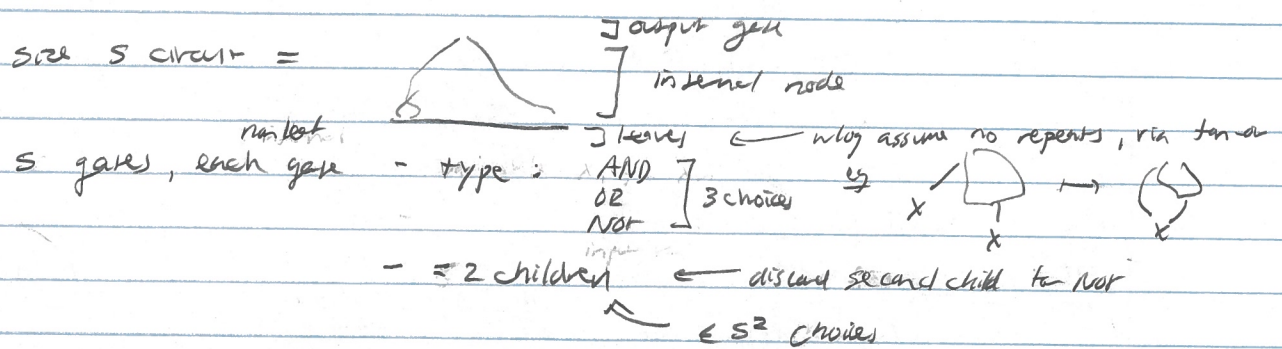 ] output gate
size s circuit =
] internal node
] leaves ← wlog assume no repeats, via fan-out
nonleaf
s gates, each gate - type: AND
OR ] 3 choices eg x x ↦ x
NOT
input
- = 2 children ← discard second child for NOT
≤ s² choices